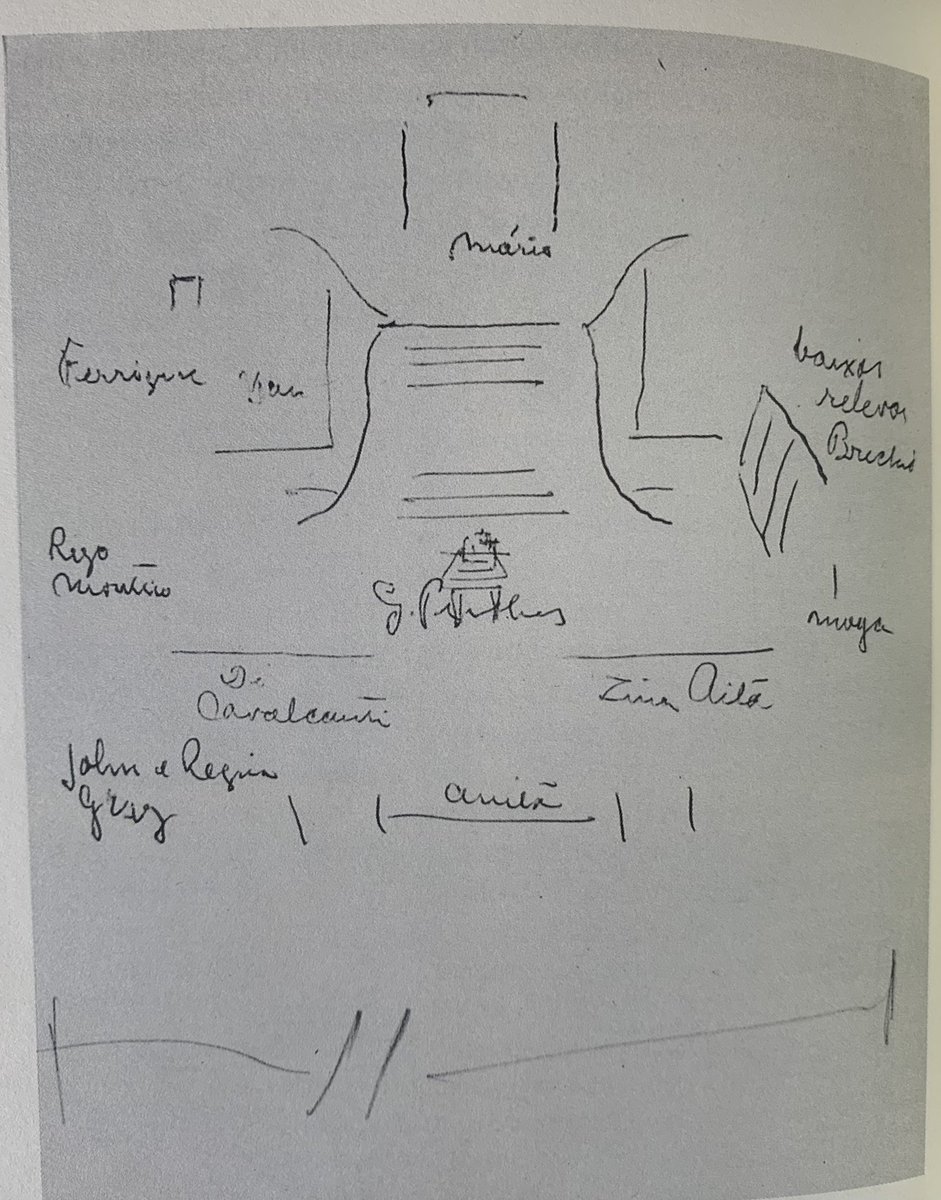 Mário
Ferrignac Yan
baixos
relevos
Brecheret
Rego
Monteiro
G. Przirembel
Moya
Di
Cavalcanti
Zina Aitá
John e Regina
Graz
Anita